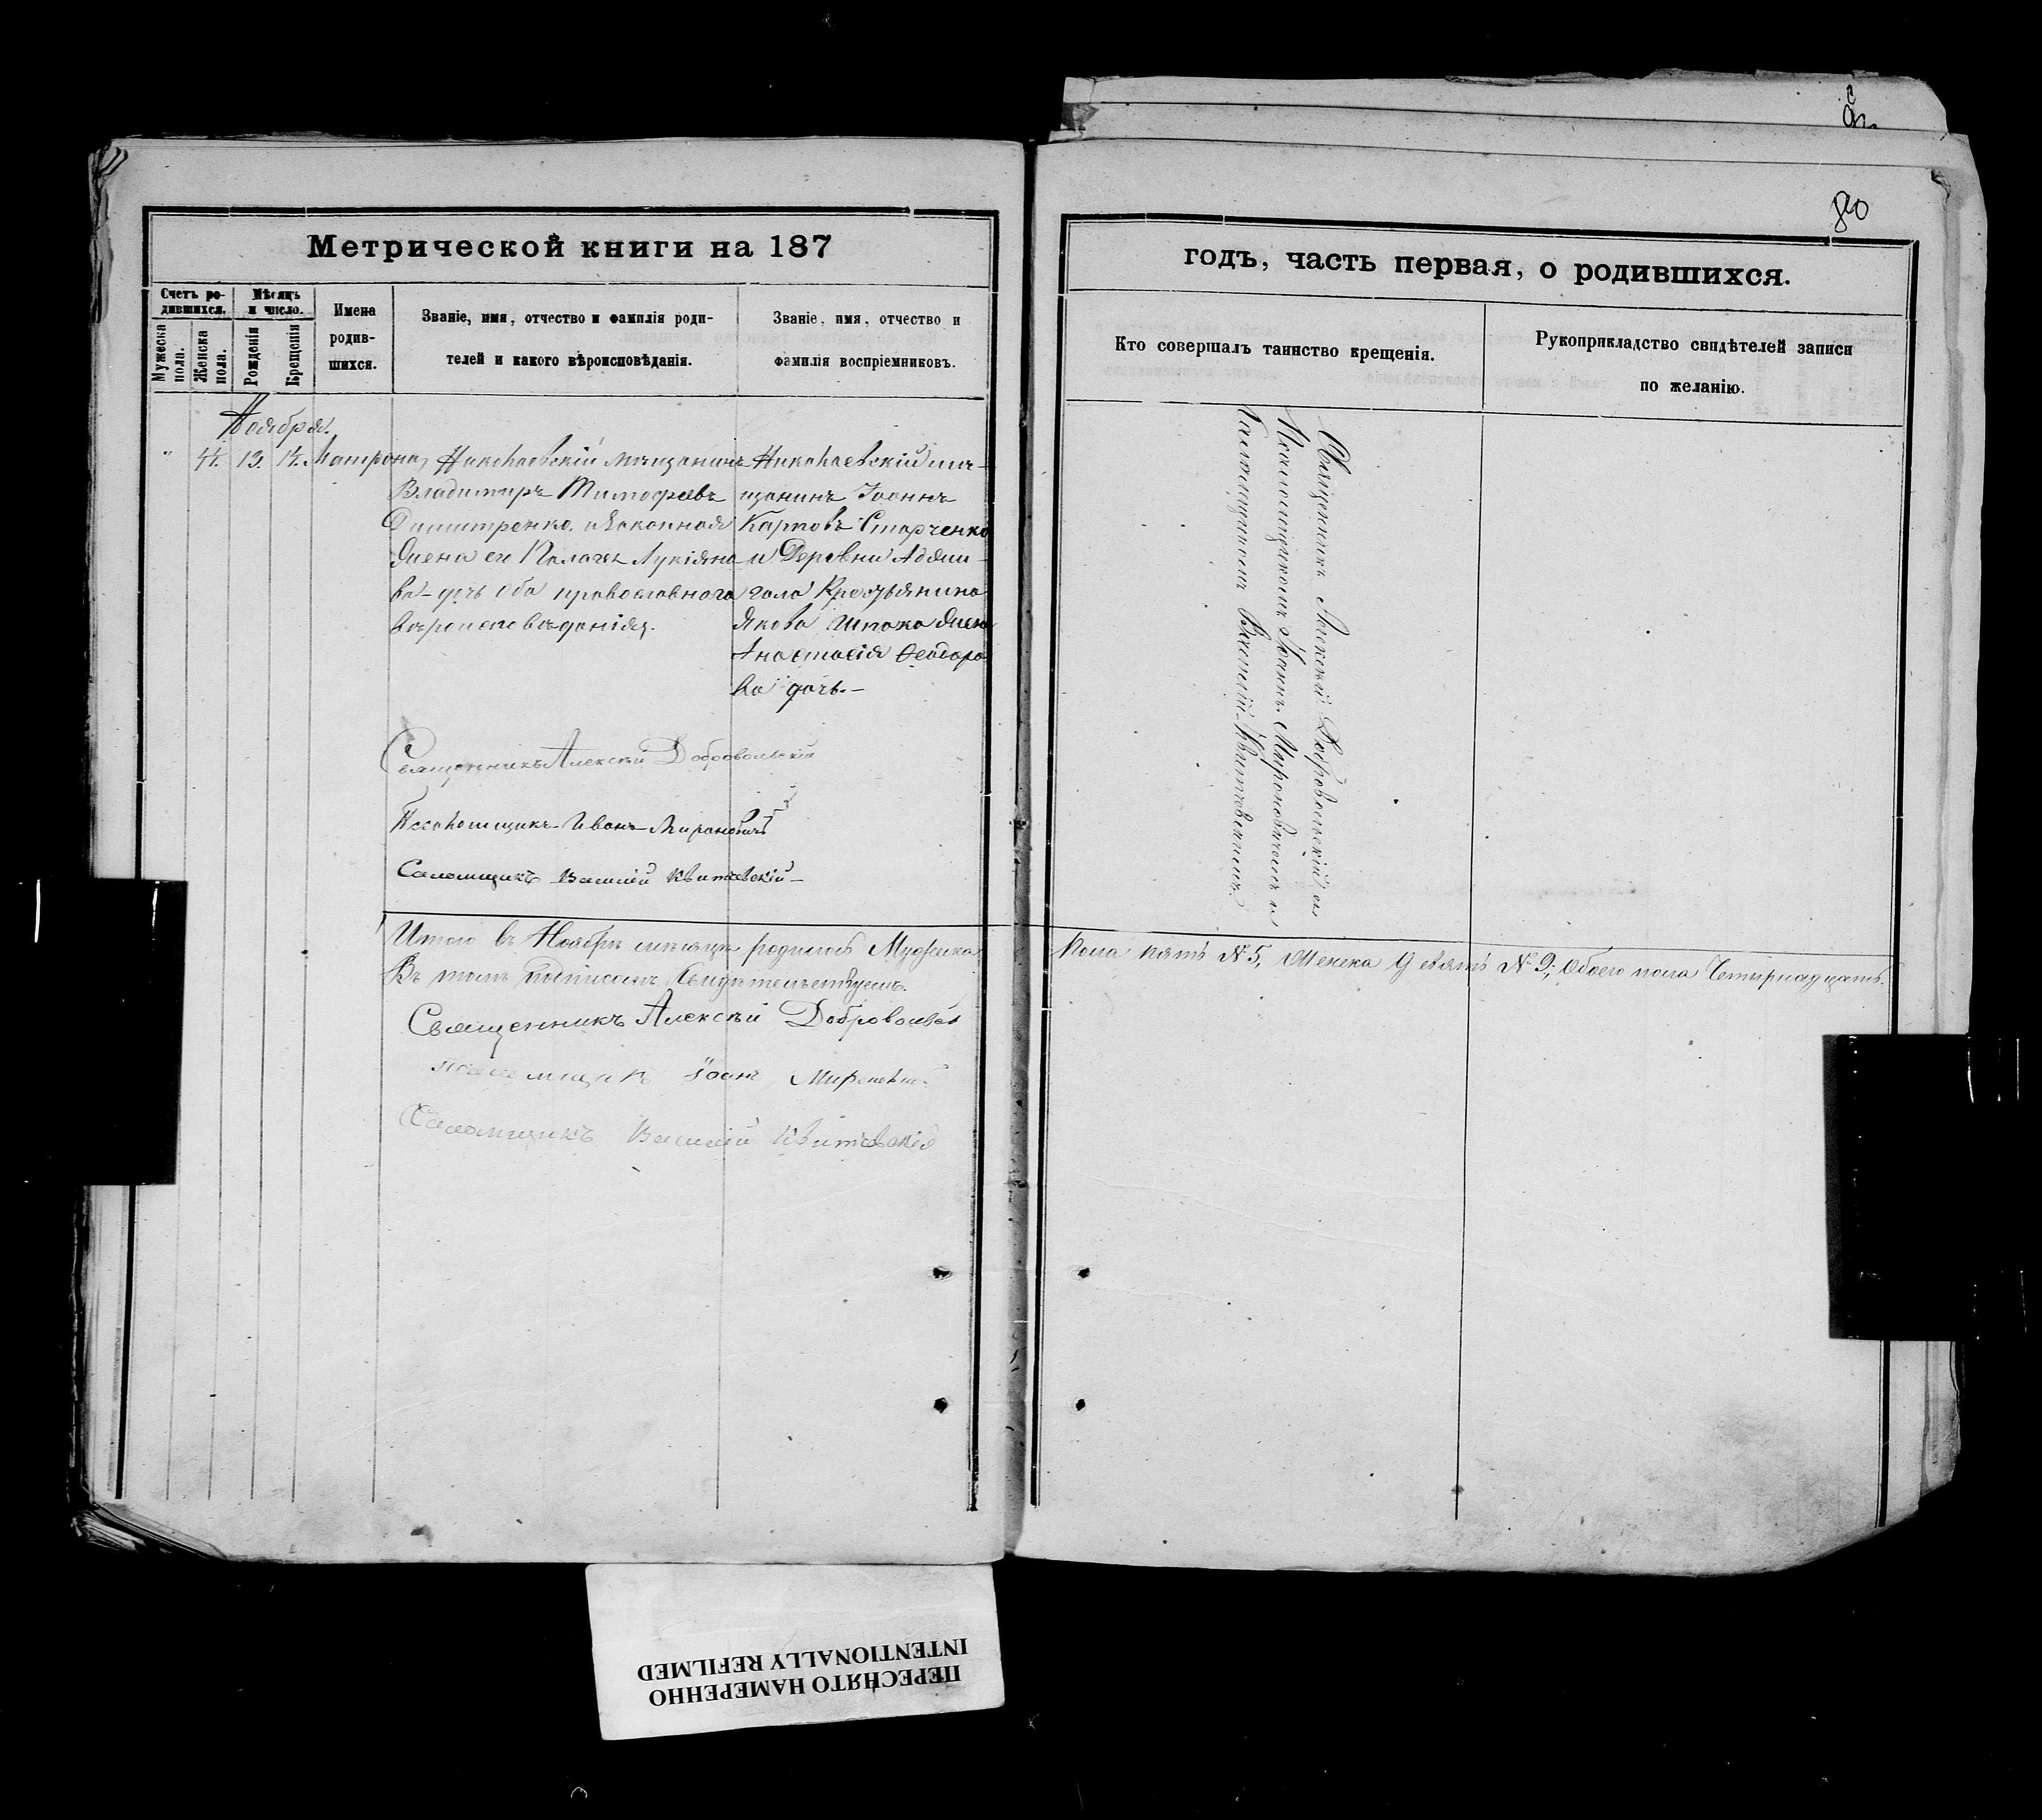 80
Метрической книги на 187
годъ, часть первая, о родившихся.
Счетъ родившихся.
Мужеска пола.
Женска пола.
Мѣсяцъ и число.
Рожденія
Крещенія
Имена родившихся.
Званіе, имя, отчество и фамилія родителей и какого вѣроисповѣданія.
Званіе, имя, отчество и фамилія воспріемниковъ.
Кто совершалъ таинство крещенія.
Рукоприкладство свидѣтелей записи по желанію.
Ноября.
" 44. 13. 14. Матрона,
Николаевскій мѣщанинъ
Владимиръ Тимофеевъ
Димитренко и законная
жена его Лукіяно
ва дочь оба православнаго
вѣроисповѣданія.
Николаевскій мѣ-
щанинъ Іоаннъ
Карповъ Старченко
и Деревни Аджи-
гола Крестьянина
Якова Шпака жена
Анастасія Ѳеодоро
ва дочь.-
Священникъ Алексѣй Добровольскій съ
Псаломщикомъ Іоанн. Мироновичемъ и
Паламщикомъ Василій Квитковскимъ.
Священникъ Алексѣй Добровольскій
Псаломщикъ Иванъ Мироновичъ
Саломщикъ Василій Квитковскій
Итого въ Ноябрѣ мѣсяцѣ родилось Мужеска
пола пять № 5, Женска девять № 9; Обоего пола Четырнадцать.
Въ томъ подписомъ Свидѣтельствуемъ.
Священникъ Алексѣй Добровольскій
Псаломщикъ Іоанъ
Саломщикъ Василій Квитковскій
ПЕРЕСНЯТО НАМЕРЕННО
INTENTIONALLY REFILMED